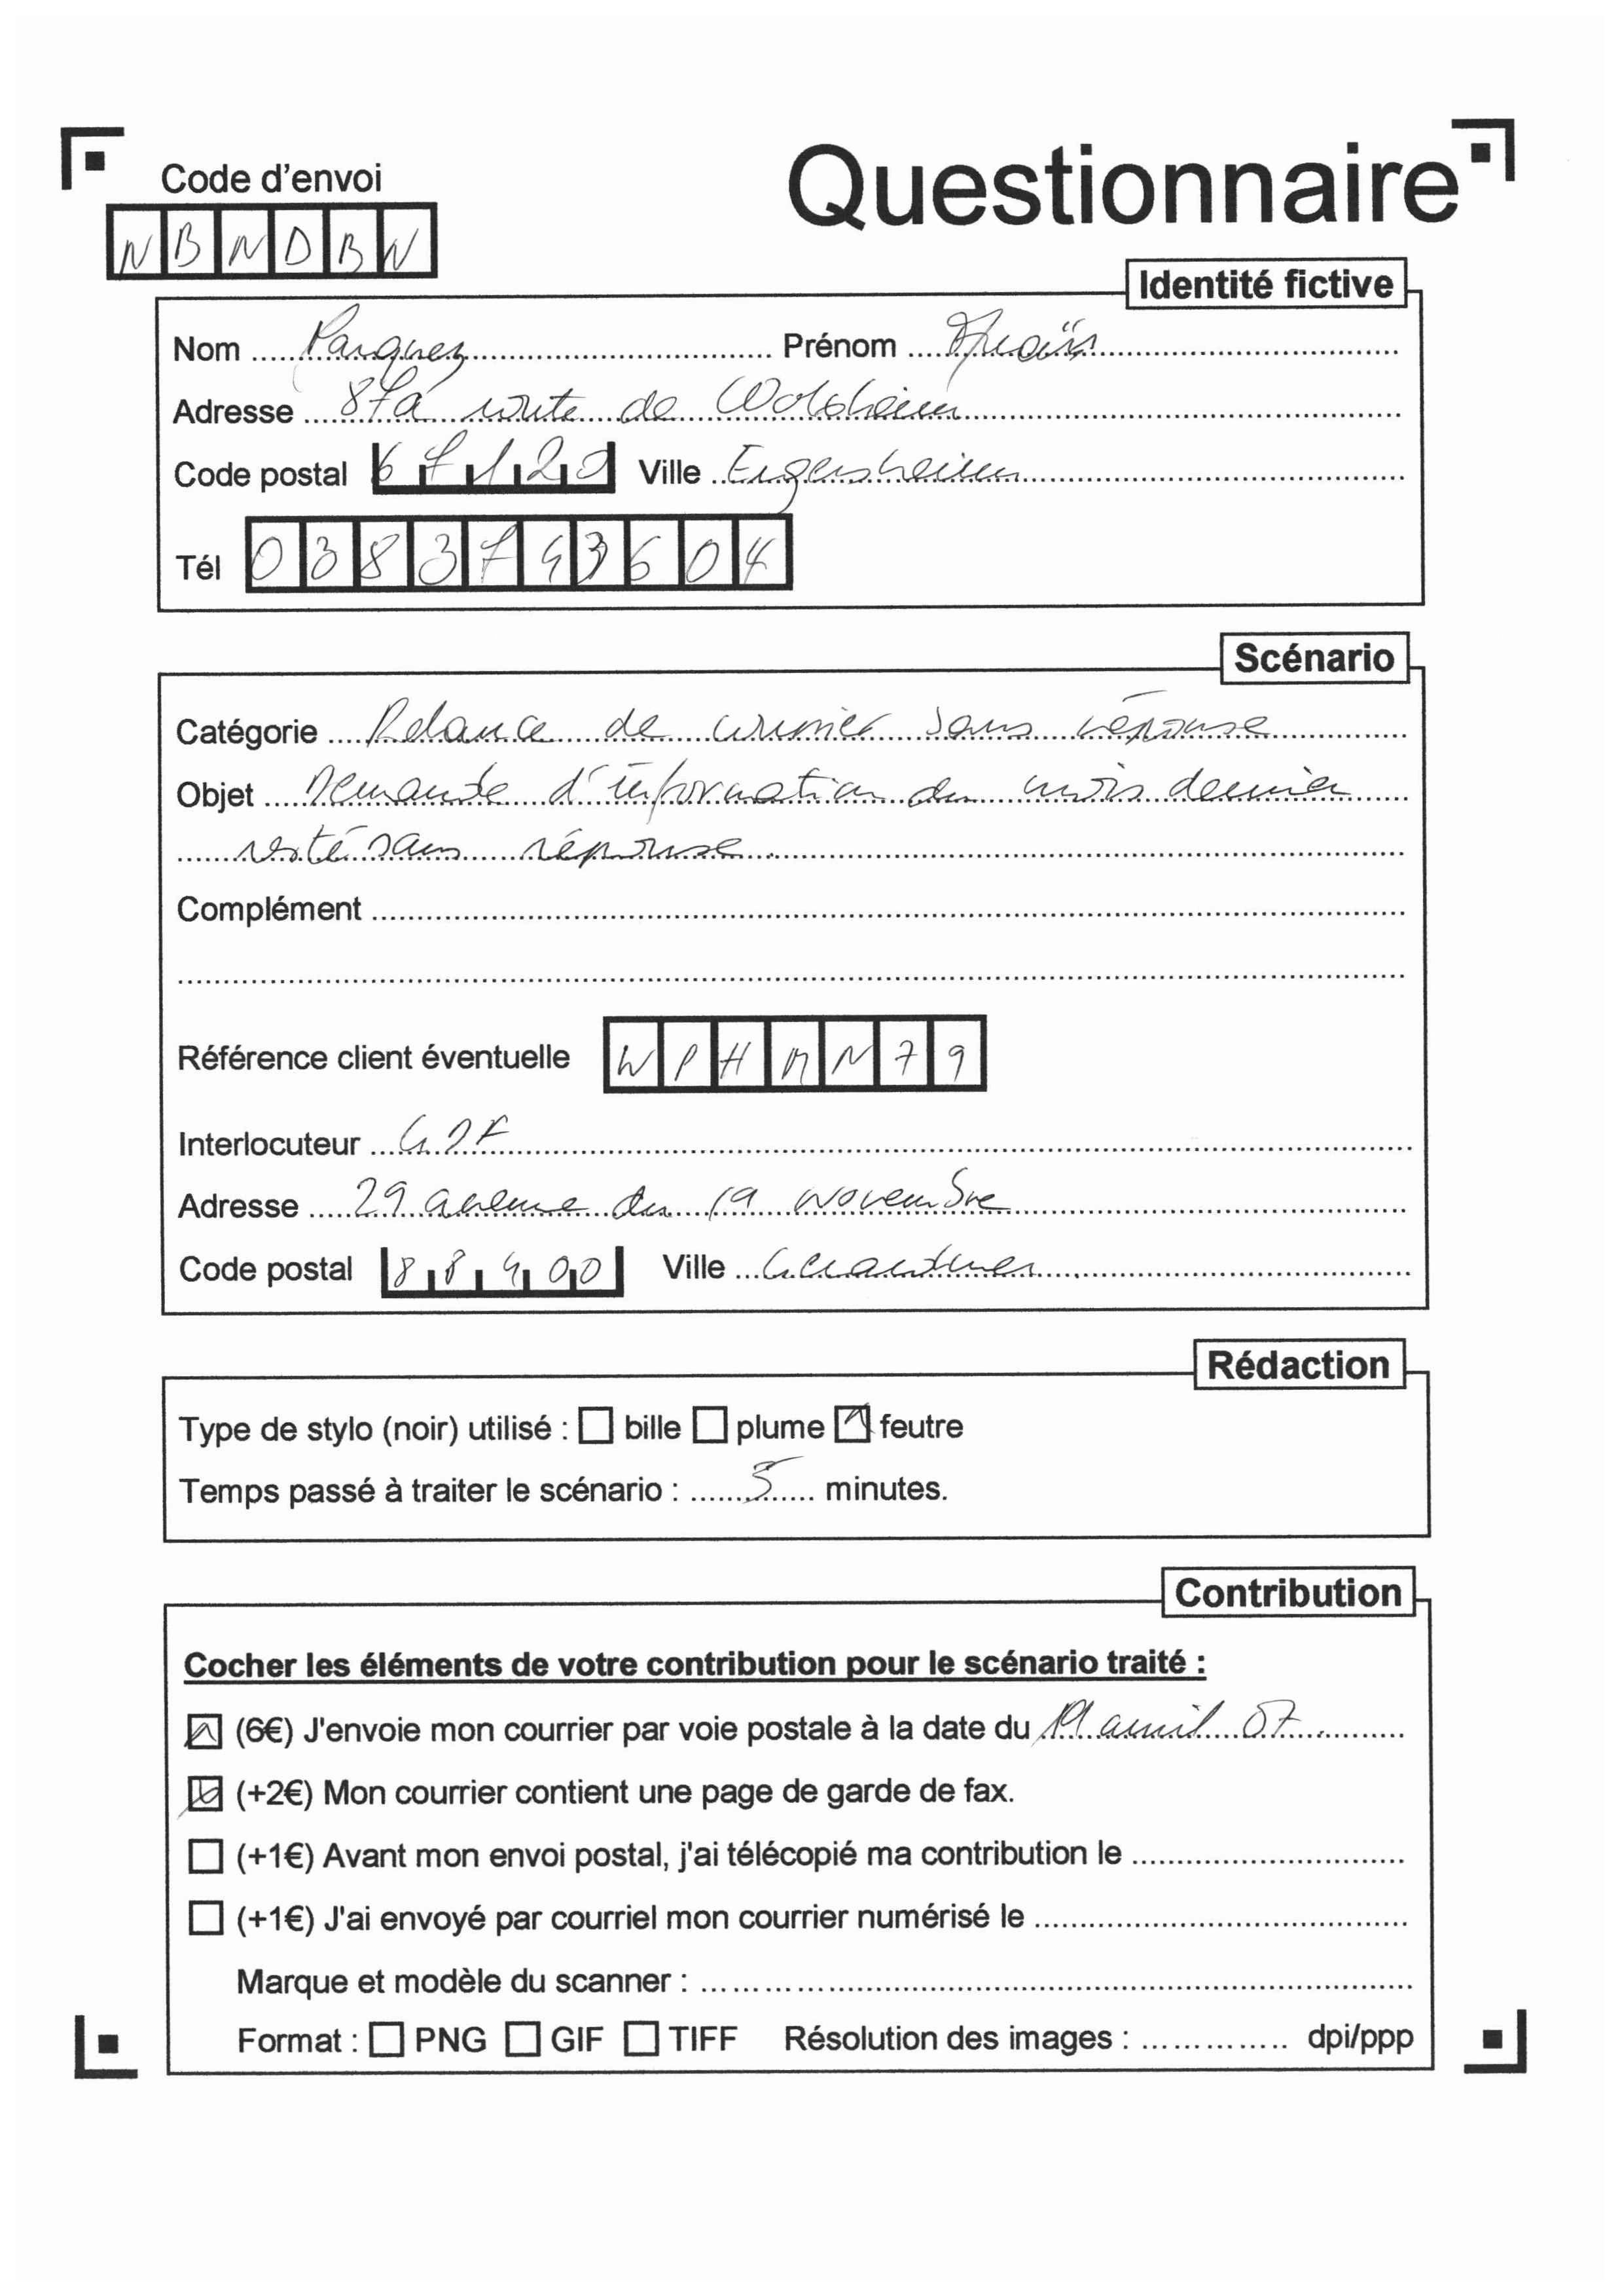 Code d'envoi
Questionnaire
NBNDBN
Identité fictive
Nom Parquez Prénom
Adresse 87a route de Wolxheim
Code postal 67120 Ville Ergersheim
Tél 0383743604
Scénario
Catégorie Relance de courrier sans réponse
Objet Demande d'information du mois dernier
resté sans réponse.
Complément
Référence client éventuelle WPHMN79
Interlocuteur GDF
Adresse 29 avenue du 19 novembre
Code postal 88400 Ville Gerardmer
Rédaction
Type de stylo (noir) utilisé : bille plume feutre
Temps passé à traiter le scénario : 5 minutes.
Contribution
Cocher les éléments de votre contribution pour le scénario traité :
(6€) J'envoie mon courrier par voie postale à la date du 19 avril 07.
(+2€) Mon courrier contient une page de garde de fax.
(+1€) Avant mon envoi postal, j'ai télécopié ma contribution le
(+1€) J'ai envoyé par courriel mon courrier numérisé le
Marque et modèle du scanner :
Format : PNG GIF TIFF Résolution des images : dpi/ppp